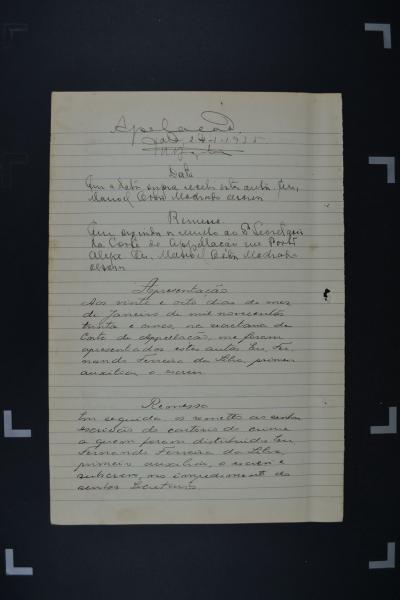 Apelação
24-1-935
Data
Em a data supra recebi estes autos. Eu,
Manoel Odon Machado escrevi
Remessa
Em seguida os remetto ao Sr Secretario
da Corte de Appellação em Porto
Alegre Eu, Manoel Odon Machado
escrevi
Apresentação
Aos vinte e oito dias do mez
de Janeiro de mil novecentos
trinta e cinco, na secretaria da
Corte de Appellação, me foram
apresentados estes autos Eu, Fer
nando Ferreira da Silva, primeiro
auxiliar, o escrevi
Remessa
Em seguida os remetto ao senhor
escrivão do cartorio do crime
a quem foram distribuidos Eu,
Fernando Ferreira da Silva,
primeiro auxiliar, o escrevi e
subscrevi, no impedimento do
senhor Secretario